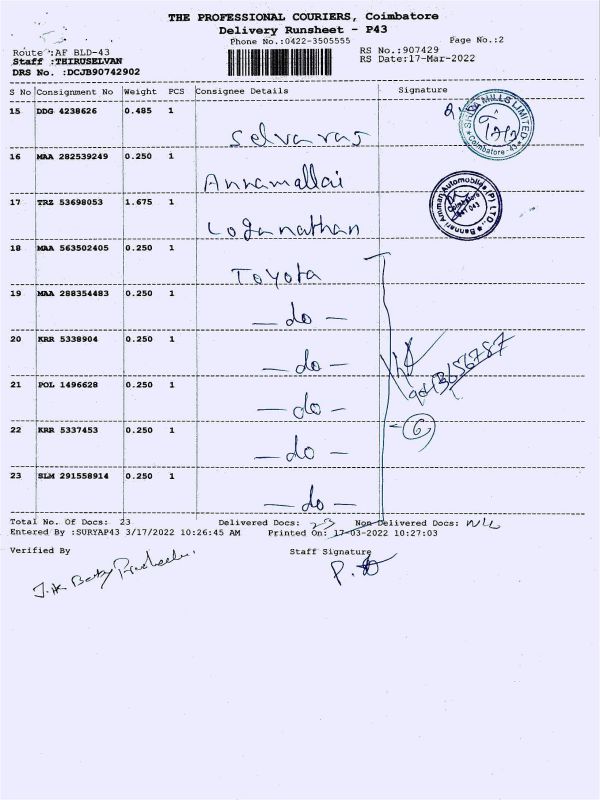 THE PROFESSIONAL COURIERS, Coimbatore
Delivery Runsheet - P43
Phone No.:0422-3505555
Page No.:2
Route :AF BLD-43
RS No.:907429
Staff :THIRUSELVAN
RS Date:17-Mar-2022
DRS No. :DCJB90742902
S No Consignment No Weight PCS Consignee Details Signature
15 DDG 4238626 0.485 1
Selvaraj
16 MAA 282539249 0.250 1
Annamallai
17 TRZ 53698053 1.675 1
Loganathan
18 MAA 563502405 0.250 1
Toyota
19 MAA 288354483 0.250 1
— do —
20 KRR 5338904 0.250 1
— do —
21 POL 1496628 0.250 1
— do —
22 KRR 5337453 0.250 1
— do —
23 SLM 291558914 0.250 1
— do —
MILLS LIMITED
Coimbatore - 43
Bannari Amman Automobiles (P) LTD.
Coimbatore
6
Total No. Of Docs: 23 Delivered Docs: 23 Non Delivered Docs: NIL
Entered By :SURYAP43 3/17/2022 10:26:45 AM Printed On: 17-03-2022 10:27:03
Verified By Staff Signature